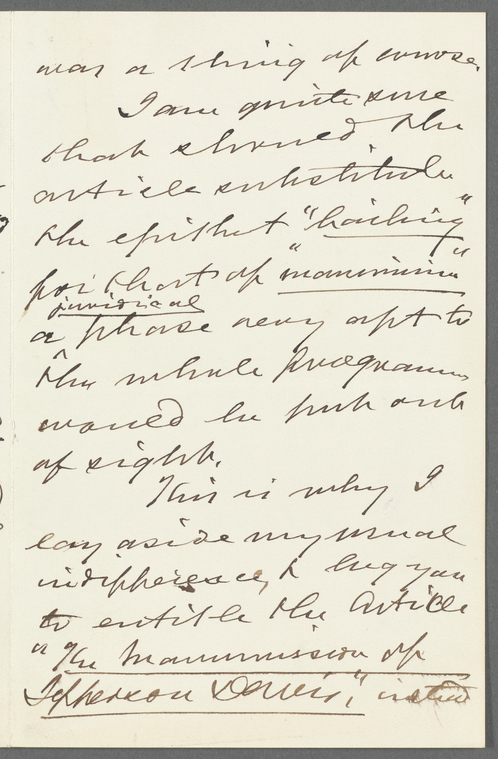 was a thing of course.
I am quite sure
that should the
article substitute
the epithet "bailing"
for that of "manumission"
juridical
a phrase very apt to
the whole programme
would be put out
of sight.
This is why I
lay aside my usual
indifference, & beg you
to entitle the Article
"The Manumission of
Jefferson Davis," instead